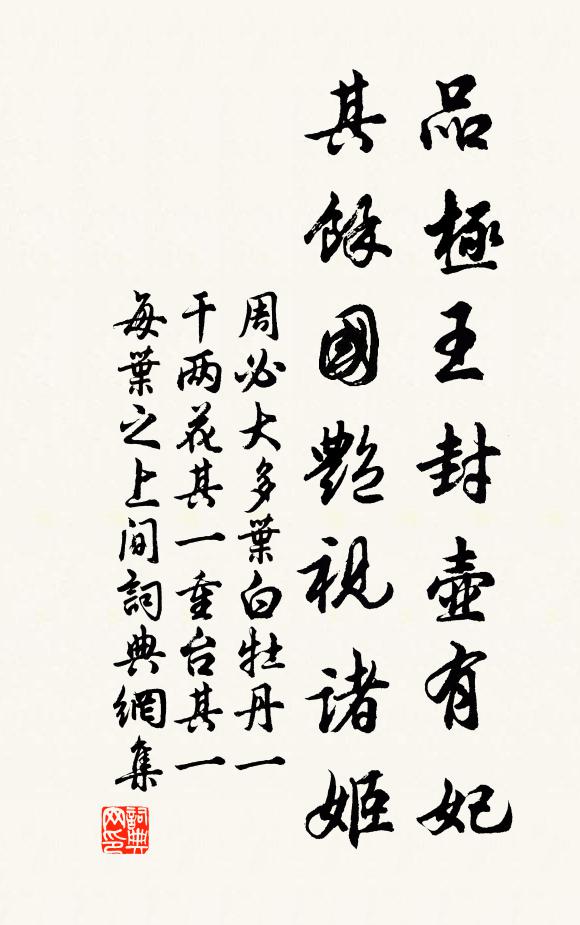 品極王封壺有妃
其餘國艷視諸姬
周必大多葉白牡丹一
干两花其一重台其一
每葉之上間詞典網集
詞典网印